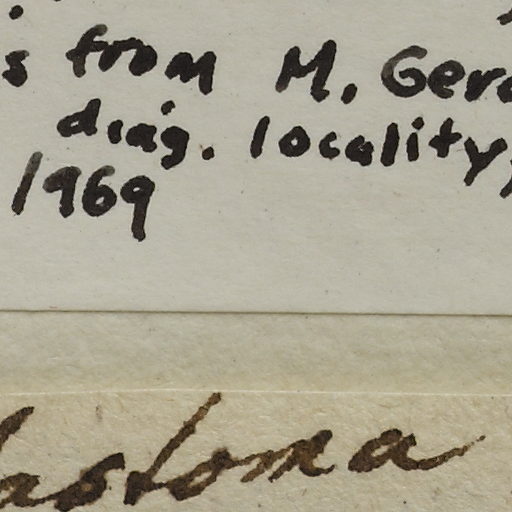 s from M. Gera
diag. locality,
1969
lastoma